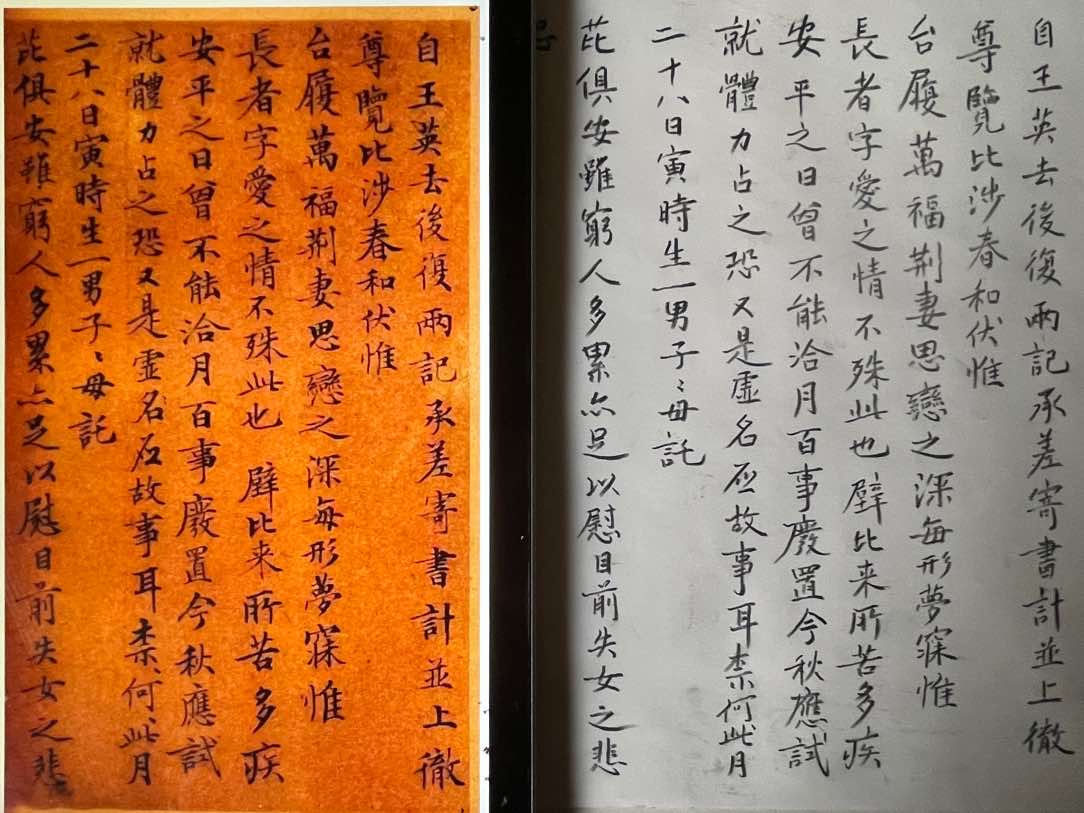 自王英去後復兩記承差寄書計並上徹
尊覽比涉春和伏惟
台履萬福荆妻思戀之深每形夢寐惟
長者字愛之情不殊此也 辟比来所苦多疾
安平之日曾不能洽月百事廢置今秋應試
就體力占之恐又是虛名应故事耳柰何此月
二十八日寅時生一男子〻母託
芘俱安雖窮人多累亦足以慰目前失女之悲
自王英去後復兩記承差寄書計並上徹
尊覽比涉春和伏惟
台履萬福荆妻思戀之深每形夢寐惟
長者字愛之情不殊此也辟比来所苦多疾
安平之日曾不能洽月百事廢置今秋應試
就體力占之恐又是虛名应故事耳柰何此月
二十八日寅時生一男子〻母託
芘俱安雖窮人多累亦足以慰目前失女之悲